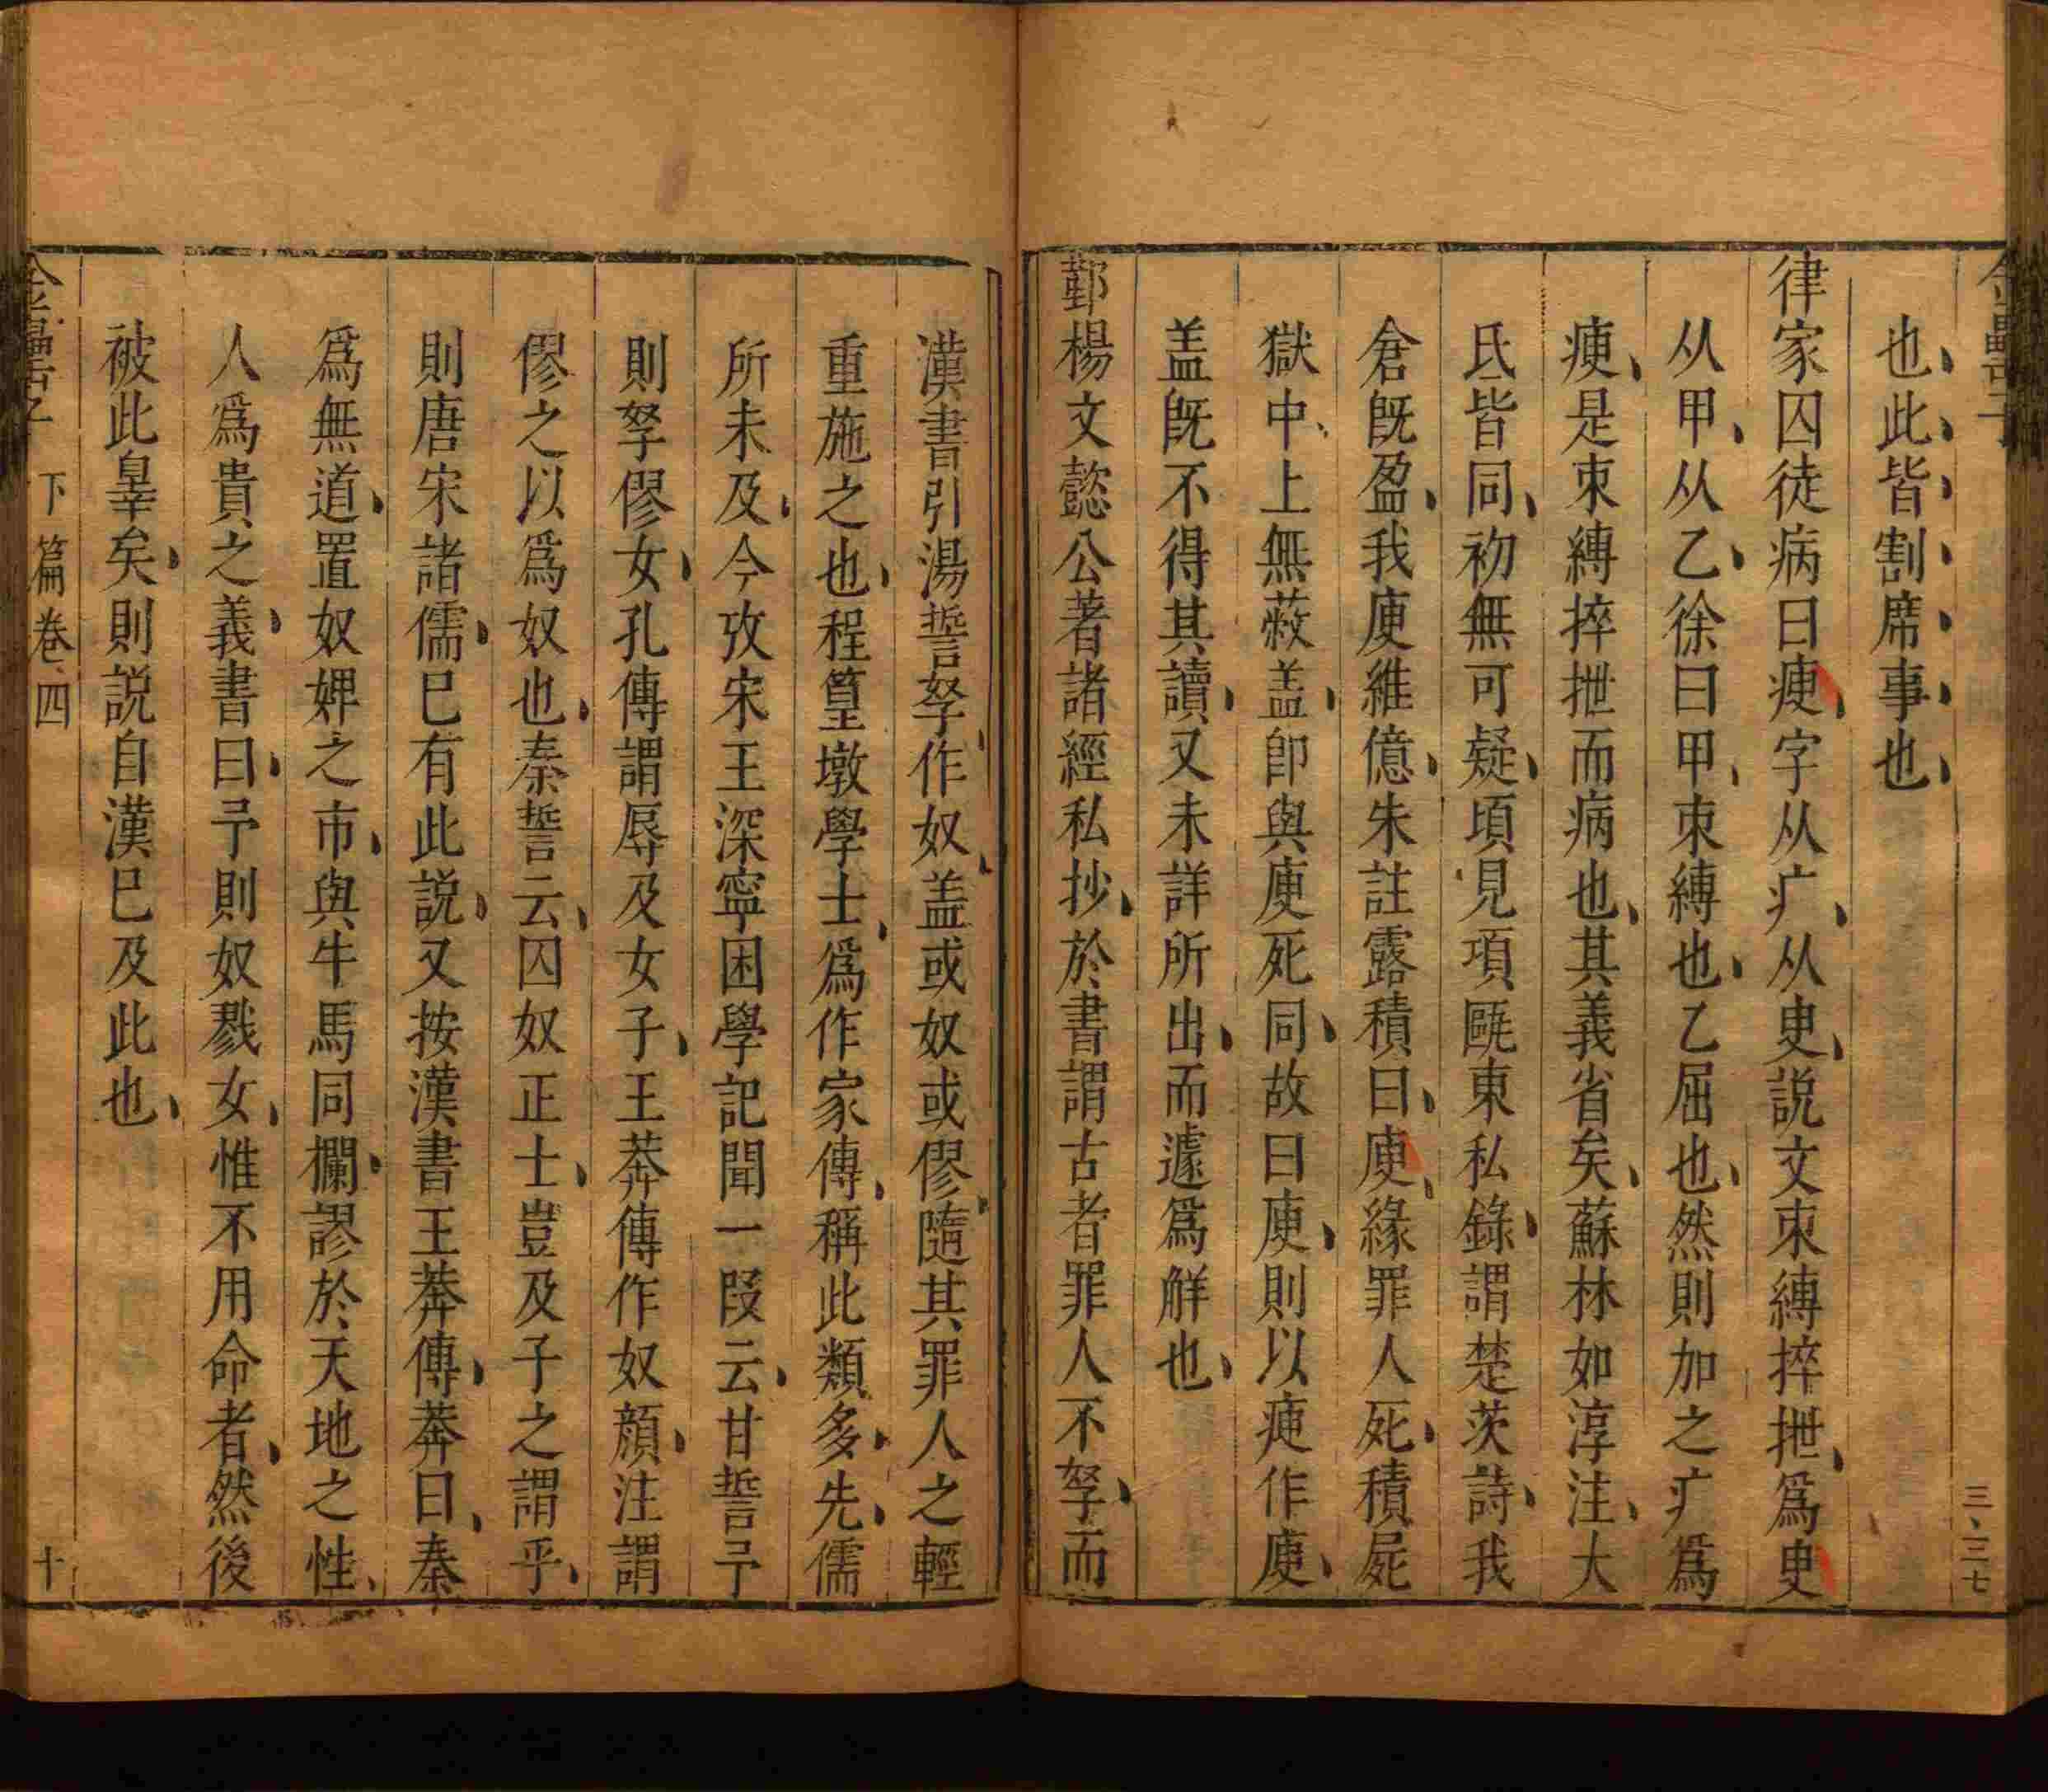 也此皆割席事也
律家囚徒病曰瘐字从疒从臾説文束縛捽抴爲臾
从甲从乙徐曰甲束縛也乙屈也然則加之疒爲
瘐是束縛捽抴而病也其義省矣蘇林如淳注大
氐皆同初無可疑頃見項甌東私錄謂楚茨詩我
倉旣盈我庾維億朱註露積曰庾緣罪人死積屍
獄中上無蔽盖卽與庾死同故曰庾則以瘐作庾
盖旣不得其讀又未詳所出而遽爲解也
鄞楊文懿公著諸經私抄於書謂古者罪人不孥而
漢書引湯誓孥作奴盖或奴或僇隨其罪人之輕
重施之也程篁墩學士爲作家傳稱此類多先儒
所未及今攷宋王深寧困學記聞一段云甘誓予
則孥僇女孔傳謂辱及女子王莽傳作奴顏注謂
僇之以爲奴也秦誓云囚奴正士豈及子之謂乎
則唐宋諸儒巳有此説又按漢書王莽傳莽曰秦
爲無道置奴婢之市與牛馬同欄謬於天地之性
人爲貴之義書曰予則奴戮女惟不用命者然後
被此辠矣則説自漢巳及此也
金罍子 下篇卷四 十
三三七